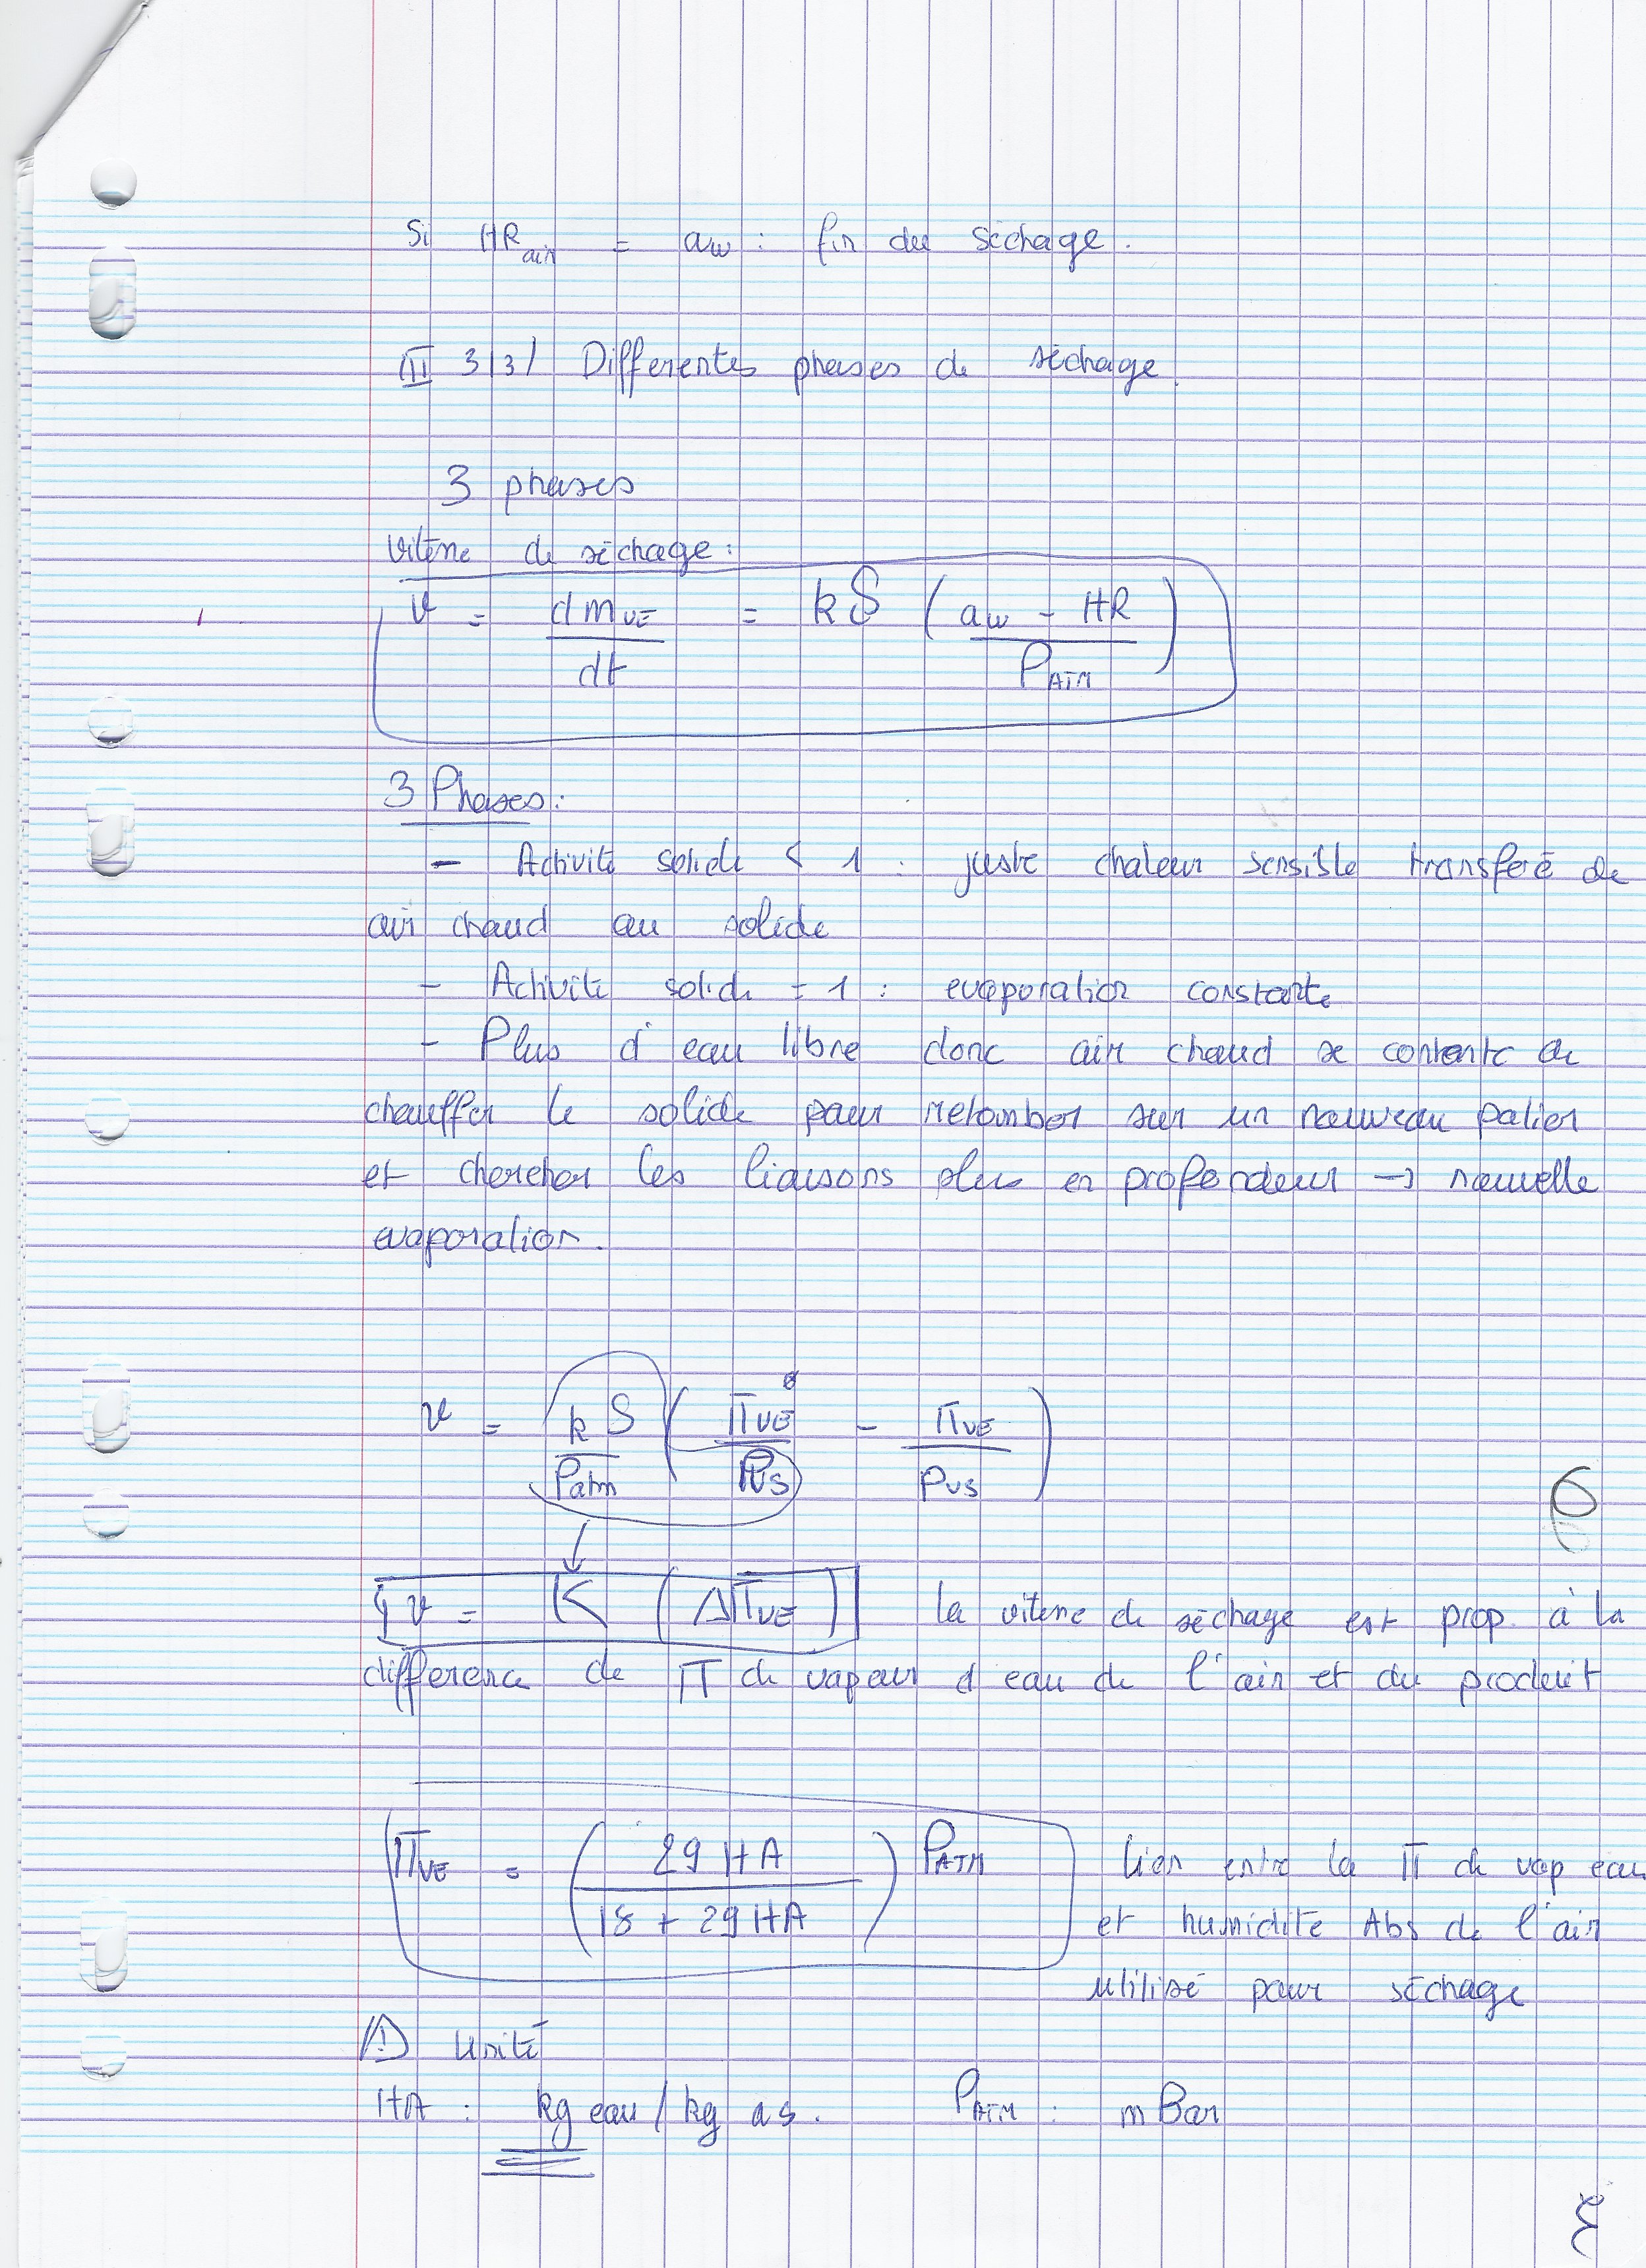 Si HRair = aw : fin du séchage.
III 3/3/ Differentes phases de séchage.
3 phases
Vitesse de séchage :
v = dmVE/dt = kS ( (aw - HR)/PATM )
3 Phases :
- Activité solide < 1 : juste chaleur sensible transféré de
air chaud au solide
- Activité solide = 1 : evaporation constante
- Plus d'eau libre donc air chaud se contente de
chauffer le solide pour retomber sur un nouveau palier
et chercher les liaisons plus en profondeur → nouvelle
evaporation.
v = kS/Patm ( ΠVE/PVS - ΠVE/PVS )
↓
v = K (ΔΠVE) la vitesse de séchage est prop. à la
difference de Π de vapeur d'eau de l'air et du produit
6
ΠVE = ( 29 HA / (18 + 29 HA) ) PATM lien entre la Π de vap eau
et humidité Abs de l'air
utilisé pour séchage
⚠ Unité
HA : kg eau / kg as. PATM : mBar